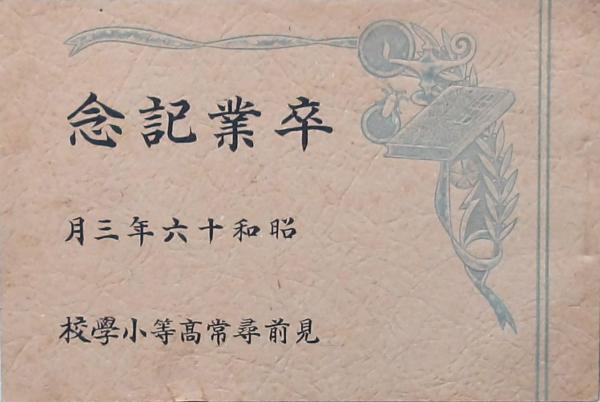 卒業記念
昭和十六年三月
見前尋常高等小學校